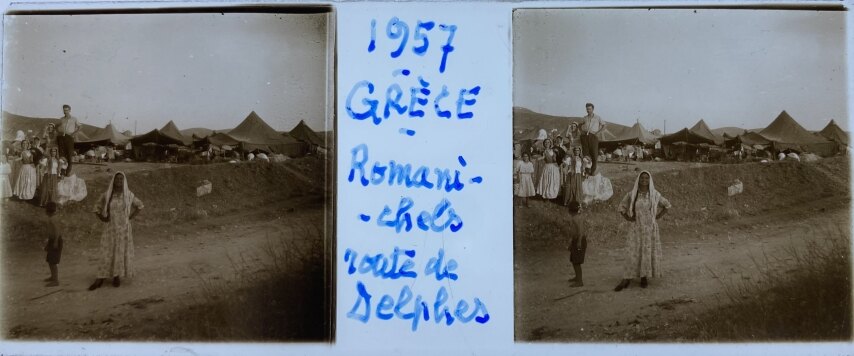 1957
-
GRÈCE
-
Romani-
-chels
route de
Delphes